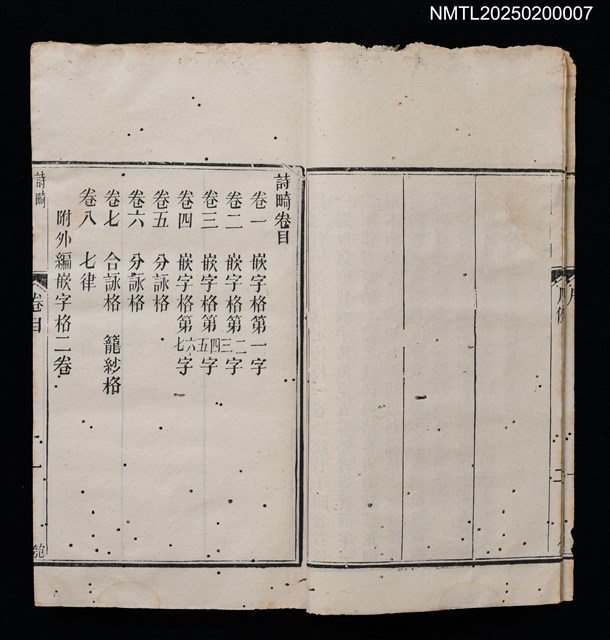 NMTL20250200007
詩畸卷目
卷一 嵌字格第一字
卷二 嵌字格第二三字
卷三 嵌字格第四五字
卷四 嵌字格第六七字
卷五 分詠格
卷六 分詠格
卷七 合詠格 籠紗格
卷八 七律
附外編嵌字格二卷
詩畸
卷目
一